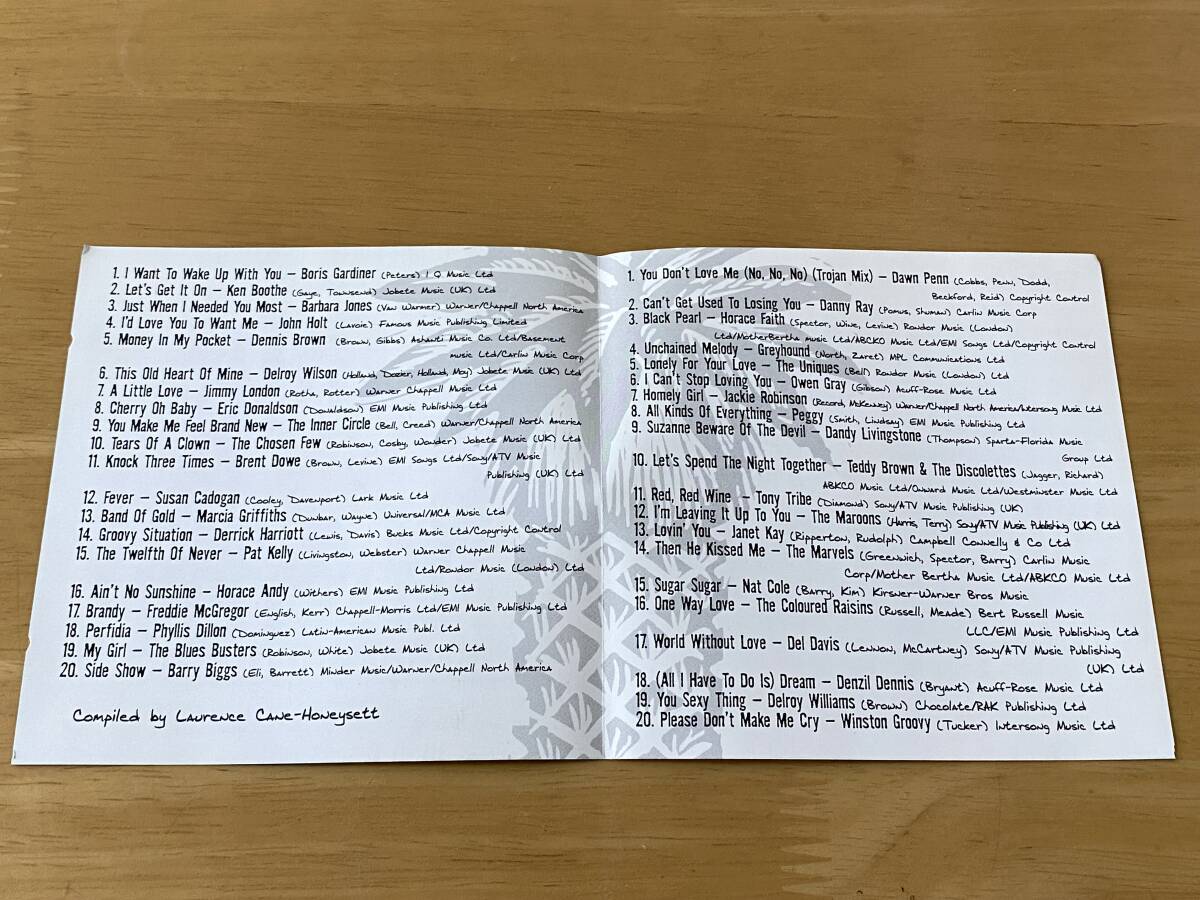 1. I Want To Wake Up With You – Boris Gardiner (Peters) I Q Music Ltd
2. Let's Get It On – Ken Boothe (Gaye, Townsend) Jobete Music (UK) Ltd
3. Just When I Needed You Most – Barbara Jones (Van Warmer) Warner/Chappell North America
4. I'd Love You To Want Me – John Holt (Lavoie) Famous Music Publishing Limited
5. Money In My Pocket – Dennis Brown (Brown, Gibbs) Ashanti Music Co. Ltd/Basement
music Ltd/Carlin Music Corp
6. This Old Heart Of Mine – Delroy Wilson (Holland, Dozier, Holland, Moy) Jobete Music (UK) Ltd
7. A Little Love – Jimmy London (Rotha, Rotter) Warner Chappell Music Ltd
8. Cherry Oh Baby – Eric Donaldson (Donaldson) EMI Music Publishing Ltd
9. You Make Me Feel Brand New – The Inner Circle (Bell, Creed) Warner/Chappell North America
10. Tears Of A Clown – The Chosen Few (Robinson, Cosby, Wonder) Jobete Music (UK) Ltd
11. Knock Three Times – Brent Dowe (Brown, Levine) EMI Songs Ltd/Sony/ATV Music
Publishing (UK) Ltd
12. Fever – Susan Cadogan (Cooley, Davenport) Lark Music Ltd
13. Band Of Gold – Marcia Griffiths (Dunbar, Wayne) Universal/MCA Music Ltd
14. Groovy Situation – Derrick Harriott (Lewis, Davis) Bucks Music Ltd/Copyright Control
15. The Twelfth Of Never – Pat Kelly (Livingston, Webster) Warner Chappell Music
Ltd/Rondor Music (London) Ltd
16. Ain't No Sunshine – Horace Andy (Withers) EMI Music Publishing Ltd
17. Brandy – Freddie McGregor (English, Kerr) Chappell-Morris Ltd/EMI Music Publishing Ltd
18. Perfidia – Phyllis Dillon (Dominguez) Latin-American Music Publ. Ltd
19. My Girl – The Blues Busters (Robinson, White) Jobete Music (UK) Ltd
20. Side Show – Barry Biggs (Eli, Barrett) Minder Music/Warner/Chappell North America
Compiled by Laurence Cane-Honeysett
1. You Don't Love Me (No, No, No) (Trojan Mix) – Dawn Penn (Cobbs, Penn, Dodd,
Beckford, Reid) Copyright Control
2. Can't Get Used To Losing You – Danny Ray (Pomus, Shuman) Carlin Music Corp
3. Black Pearl – Horace Faith (Spector, Wine, Levine) Rondor Music (London)
Ltd/MotherBertha music Ltd/ABCKO Music Ltd/EMI Songs Ltd/Copyright Control
4. Unchained Melody – Greyhound (North, Zaret) MPL Communications Ltd
5. Lonely For Your Love – The Uniques (Bell) Rondor Music (London) Ltd
6. I Can't Stop Loving You – Owen Gray (Gibson) Acuff-Rose Music Ltd
7. Homely Girl – Jackie Robinson (Record, McKenney) Warner/Chappell North America/Intersong Music Ltd
8. All Kinds Of Everything – Peggy (Smith, Lindsay) EMI Music Publishing Ltd
9. Suzanne Beware Of The Devil – Dandy Livingstone (Thompson) Sparta-Florida Music
Group Ltd
10. Let's Spend The Night Together – Teddy Brown & The Discolettes (Jagger, Richard)
ABKCO Music Ltd/Onward Music Ltd/Westminster Music Ltd
11. Red, Red Wine – Tony Tribe (Diamond) Sony/ATV Music Publishing (UK)
12. I'm Leaving It Up To You – The Maroons (Harris, Terry) Sony/ATV Music Publishing (UK) Ltd
13. Lovin' You – Janet Kay (Ripperton, Rudolph) Campbell Connelly & Co Ltd
14. Then He Kissed Me – The Marvels (Greenwich, Spector, Barry) Carlin Music
Corp/Mother Bertha Music Ltd/ABKCO Music Ltd
15. Sugar Sugar – Nat Cole (Barry, Kim) Kirsner-Warner Bros Music
16. One Way Love – The Coloured Raisins (Russell, Meade) Bert Russell Music
LLC/EMI Music Publishing Ltd
17. World Without Love – Del Davis (Lennon, McCartney) Sony/ATV Music Publishing
(UK) Ltd
18. (All I Have To Do Is) Dream – Denzil Dennis (Bryant) Acuff-Rose Music Ltd
19. You Sexy Thing – Delroy Williams (Brown) Chocolate/RAK Publishing Ltd
20. Please Don't Make Me Cry – Winston Groovy (Tucker) Intersong Music Ltd